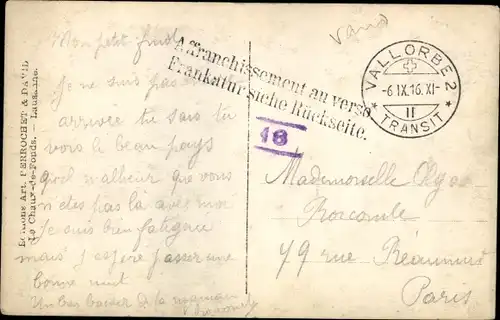 Vaud
Mon petit
Je ne suis pas
arrivée tu sais tu
vois le beau pays
qu'el malheur que vous
n'etes pas la avec moi
Je suis bien fatiguée
mais j'espère passer une
bonne nuit
Un bon baiser de la
Affranchissement au verso
Frankatur siehe Rückseite.
VALLORBE 2
-6 IX.16. XI-
II
* TRANSIT *
18
Mademoiselle
79 rue Réaumur
Paris
Editions Art. PERROCHET & DAVID
La Chaux-de-Fonds. — Lausanne.